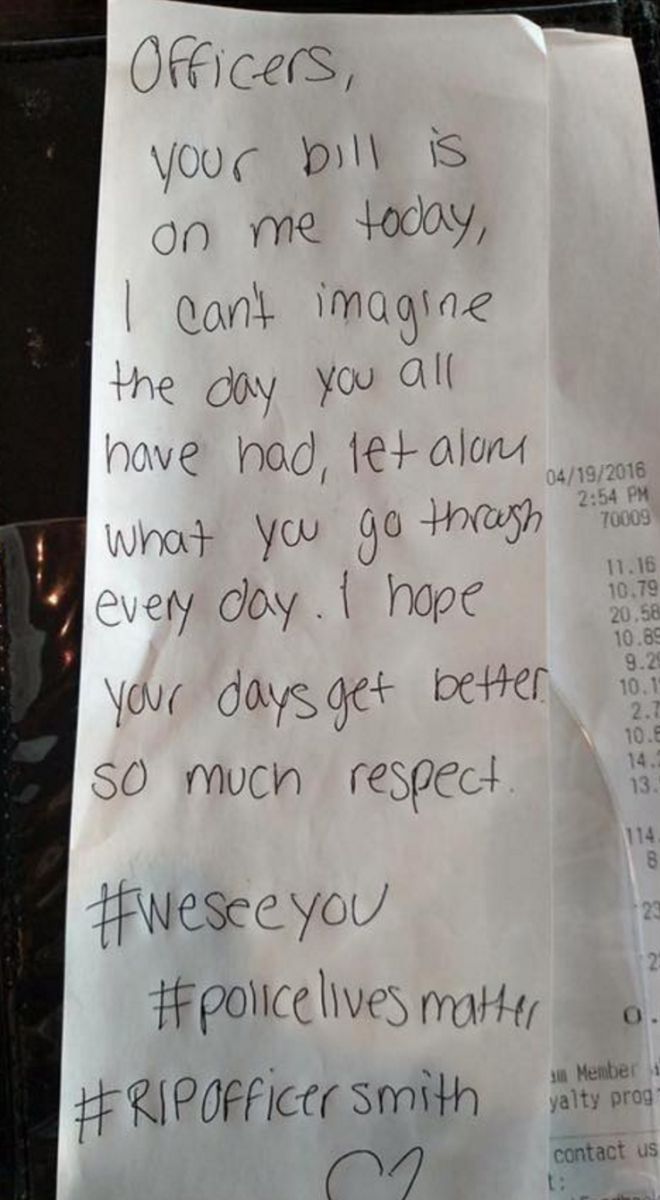 Officers,
your bill is
on me today,
I can't imagine
the day you all
have had, let alone
what you go through
every day. I hope
your days get better
so much respect.
#weseeyou
#policelivesmatter
#RIPOfficersmith
04/19/2016
2:54 PM
70009
11.16
10.79
20.58
10.89
9.2
10.1
2.7
10.
14.
13.
114.
8
23
2
0.
Member
yalty prog
contact us
t: